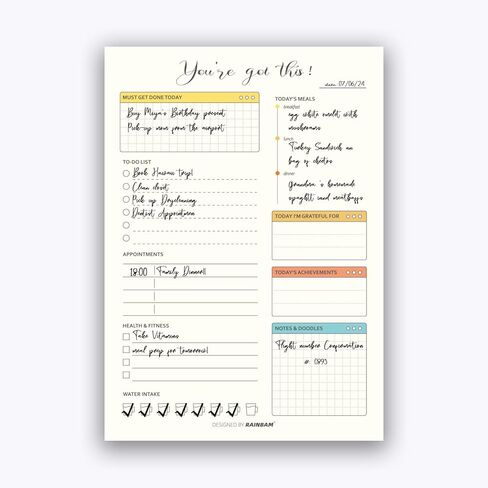 You're got this!
date: 07/06/24
MUST GET DONE TODAY
Buy Miya's Birthday present
Pick-up mom from the airport
TO-DO LIST
Book Hawaii trip!
Clean closet
Pick up Drycleaning
Dentist Appointmen
APPOINTMENTS
18:00 Family Dinner!!
HEALTH & FITNESS
Take Vitamins
meal prep for tomorrow!
WATER INTAKE
TODAY'S MEALS
breakfast
egg white omelet with
mushrooms
lunch
Turkey Sandwich an
bag of cheetos
dinner
Grandma's homemade
spaghetti and meatballs
TODAY I'M GRATEFUL FOR
TODAY'S ACHIEVEMENTS
NOTES & DOODLES
Flight number Confirmation
#: 0893
DESIGNED BY RAINBAM